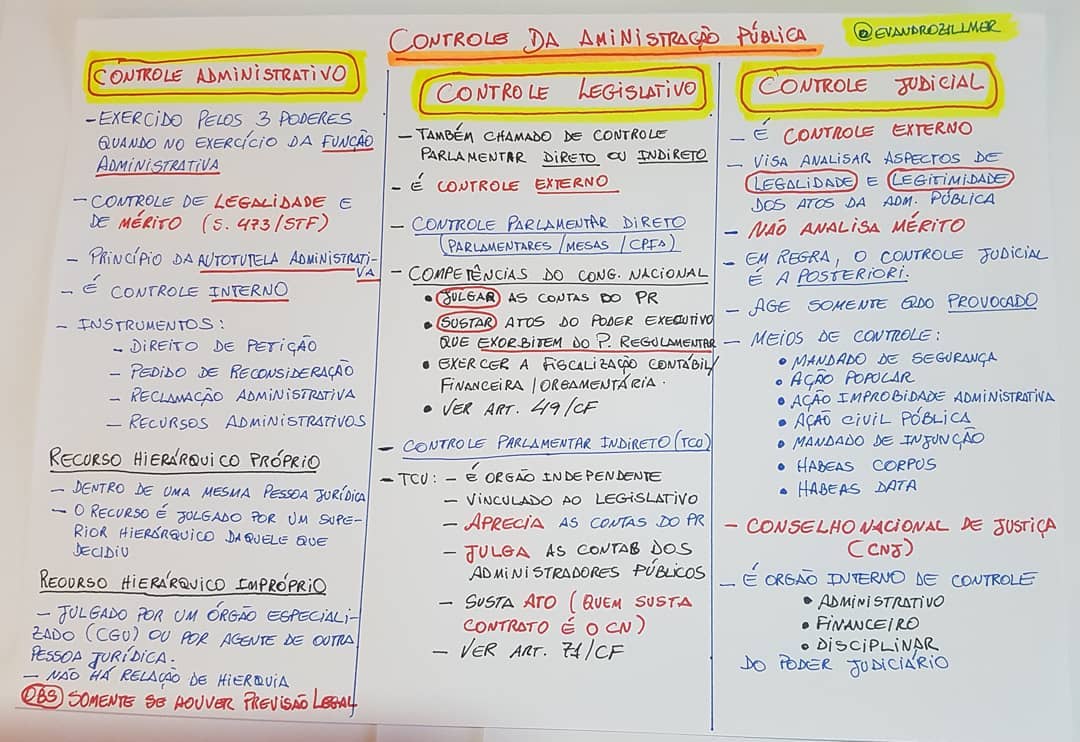 CONTROLE DA AMINISTRAÇÃO PÚBLICA
@EVANDROZILLMER
CONTROLE ADMINISTRATIVO
- EXERCIDO PELOS 3 PODERES
QUANDO NO EXERCÍCIO DA FUNÇÃO
ADMINISTRATIVA
- CONTROLE DE LEGALIDADE E
DE MÉRITO (S. 473/STF)
- PRINCÍPIO DA AUTOTUTELA ADMINISTRATI-
VA
- É CONTROLE INTERNO
- INSTRUMENTOS:
- DIREITO DE PETIÇÃO
- PEDIDO DE RECONSIDERAÇÃO
- RECLAMAÇÃO ADMINISTRATIVA
- RECURSOS ADMINISTRATIVOS
RECURSO HIERÁRQUICO PRÓPRIO
- DENTRO DE UMA MESMA PESSOA JURÍDICA
- O RECURSO É JULGADO POR UM SUPE-
RIOR HIERÁRQUICO DAQUELE QUE
DECIDIU
RECURSO HIERÁRQUICO IMPRÓPRIO
- JULGADO POR UM ÓRGÃO ESPECIALI-
ZADO (CGU) OU POR AGENTE DE OUTRA
PESSOA JURÍDICA.
- NÃO HÁ RELAÇÃO DE HIERQUIA
OBS SOMENTE SE HOUVER PREVISÃO LEGAL
CONTROLE LEGISLATIVO
- TAMBÉM CHAMADO DE CONTROLE
PARLAMENTAR DIRETO OU INDIRETO
- É CONTROLE EXTERNO
- CONTROLE PARLAMENTAR DIRETO
(PARLAMENTARES/MESAS/CPIs)
- COMPETÊNCIAS DO CONG. NACIONAL
• JULGAR AS CONTAS DO PR
• SUSTAR ATOS DO PODER EXECUTIVO
QUE EXORBITEM DO P. REGULAMENTAR
• EXERCER A FISCALIZAÇÃO CONTÁBIL/
FINANCEIRA/ORÇAMENTÁRIA.
• VER ART. 49/CF
- CONTROLE PARLAMENTAR INDIRETO (TCU)
- TCU: - É ORGÃO INDEPENDENTE
- VINCULADO AO LEGISLATIVO
- APRECIA AS CONTAS DO PR
- JULGA AS CONTAS DOS
ADMINISTRADORES PÚBLICOS
- SUSTA ATO (QUEM SUSTA
CONTRATO É O CN)
- VER ART. 71/CF
CONTROLE JUDICIAL
- É CONTROLE EXTERNO
- VISA ANALISAR ASPECTOS DE
LEGALIDADE E LEGITIMIDADE
DOS ATOS DA ADM. PÚBLICA
- NÃO ANALISA MÉRITO
- EM REGRA, O CONTROLE JUDICIAL
É A POSTERIORI.
- AGE SOMENTE QDO PROVOCADO
- MEIOS DE CONTROLE:
• MANDADO DE SEGURANÇA
• AÇÃO POPULAR
• AÇÃO IMPROBIDADE ADMINISTRATIVA
• AÇÃO CIVIL PÚBLICA
• MANDADO DE INJUNÇÃO
• HABEAS CORPUS
• HABEAS DATA
- CONSELHO NACIONAL DE JUSTIÇA
(CNJ)
- É ORGÃO INTERNO DE CONTROLE
• ADMINISTRATIVO
• FINANCEIRO
• DISCIPLINAR
DO PODER JUDICIÁRIO